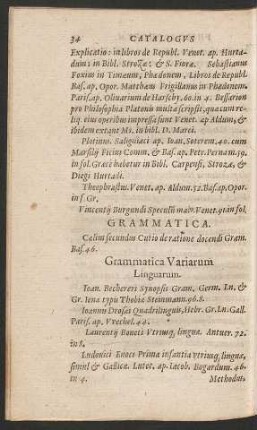 34 CATALOGVS
Explicatio: in libros de Republ. Venet. ap. Hurta-
dum: in Bibl. Strozzæ: & S. Firæ. Sebastianus
Foxius in Timæum, Phædonem, Libros de Republ.
Bas. ap. Opor. Matthæus Frigillanus in Phædonem.
Paris. ap. Oliuarium de Harsehy. 60. in 4. Bessarion
pro Philosophia Platonis multa scripsit, quæ cum re-
liq. eius operibus impressa sunt Venet. ap. Aldum, &
ibidem extant Ms. in bibl. D. Marci.
Plotinus. Saligniaci ap. Ioan. Soterem. 40. cum
Marsilij Ficini Comm. & Bas. ap. Petr. Pernam. 59.
in fol. Græcè habetur in Bibl. Carpensi, Strozæ, &
Diegi Hurtadi.
Theophrastus. Venet. ap. Aldum. 52. Bas. ap. Opor.
in f. Gr.
Vincentij Burgundi Speculũ maiv. Venet. 91. in fol.
GRAMMATICA.
Cælius secundus Curio de ratione dicendi Gram.
Bas. 46.
Grammatica Variarum
Linguarum.
Ioan. Becherei Synopsis Gram. Germ. Ln. &
Gr. Iena typis Thobiæ Steinmann. 96. 8.
Ioannis Drosæi Quadrilinguis, Hebr. Gr. Ln. Gall.
Paris. ap. Vvechel. 44.
Laurentij Boncti Vtriusq, linguæ. Antuer. 72.
in 8.
Ludouici Enoci Prima infantia vtriusq, linguæ,
simul & Gallicæ. Lutet. ap. Iacob. Bogardum. 46.
in 4. Methodus.